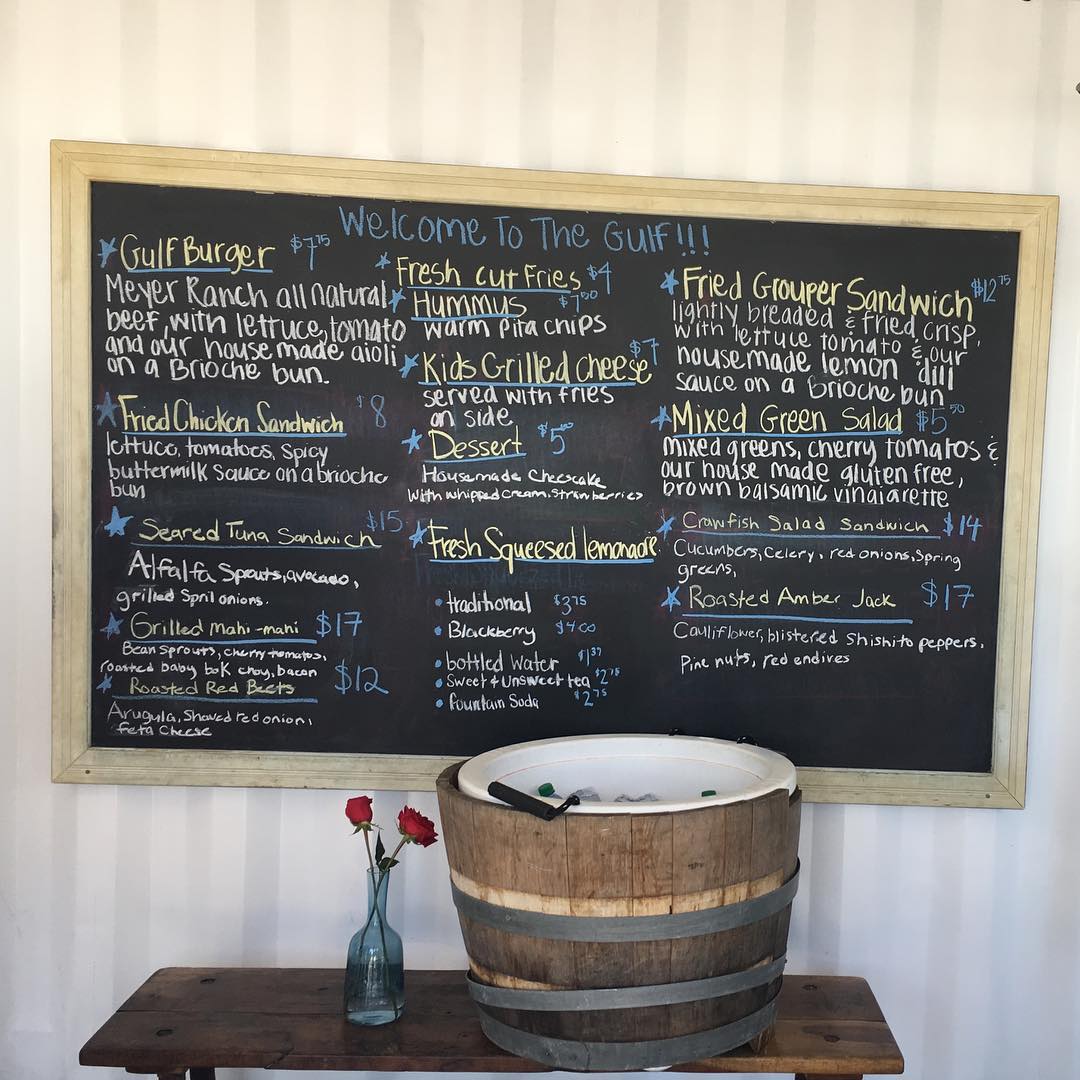 Welcome To The Gulf!!!
Gulf Burger $7.75
Meyer Ranch all natural
beef, with lettuce, tomato
and our house made aioli
on a Brioche bun.
Fried Chicken Sandwich $8
lettuce, tomatoes, spicy
buttermilk sauce on a brioche
bun
Seared Tuna Sandwich $15
Alfalfa Sprouts, avocado,
grilled Spril onions.
Grilled Mahi-mahi $17
Bean sprouts, cherry tomatoes,
roasted baby bok choy, bacon
Roasted Red Beets $12
Arugula, Shaved red onion,
feta Cheese
Fresh cut Fries $4
Hummus $7.50
warm pita chips
Kids Grilled cheese $7
served with fries
on side
Dessert $5
Housemade Cheescake
with whipped cream, strawberries
Fresh Squeesed lemonade
traditional $3.75
Blackberry $4.00
bottled Water
Sweet & Unsweet tea $2.75
fountain Soda $2.75
Fried Grouper Sandwich $12.75
lightly breaded & fried crisp,
with lettuce tomato & our
housemade lemon dill
sauce on a Brioche bun
Mixed Green Salad $5.50
mixed greens, cherry tomatoes &
our house made gluten free,
brown balsamic vinaiarette
Crawfish Salad Sandwich $14
Cucumbers, Celery, red onions, Spring
greens,
Roasted Amber Jack $17
Cauliflower, blistered Shishito peppers,
Pine nuts, red endives